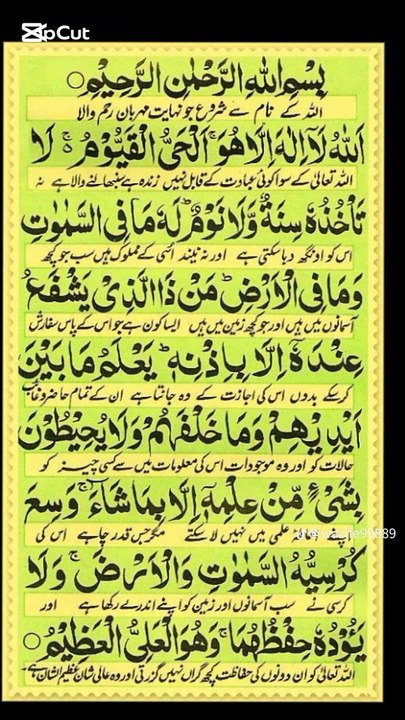 CapCut
بِسْمِ اللهِ الرَّحْمٰنِ الرَّحِيْمِ ○
اللہ کے نام سے شروع جو نہایت مہربان رحم والا
اَللّٰهُ لَاۤ اِلٰهَ اِلَّا هُوَ ۚ اَلْحَىُّ الْقَيُّوْمُ ۚ لَا
اللہ تعالیٰ کے سوا کوئی عبادت کے قابل نہیں زندہ ہے سنبھالنے والا ہے نہ
تَاْخُذُهٗ سِنَةٌ وَّلَا نَوْمٌ ؕ لَهٗ مَا فِى السَّمٰوٰتِ
اس کو اونگھ دبا سکتی ہے اور نہ نیند اسی کے مملوک ہیں سب جو کچھ
وَمَا فِى الْاَرْضِ ؕ مَنْ ذَا الَّذِىْ يَشْفَعُ
آسمانوں میں ہیں اور جو کچھ زمین میں ہیں ایسا کون ہے جو اس کے پاس سفارش
عِنْدَهٗۤ اِلَّا بِاِذْنِهٖ ؕ يَعْلَمُ مَا بَيْنَ
کر سکے بدوں اس کی اجازت کے وہ جانتا ہے ان کے تمام حاضر و غائب
اَيْدِيْهِمْ وَمَا خَلْفَهُمْ ۚ وَلَا يُحِيْطُوْنَ
حالات کو اور وہ موجودات اس کی معلومات میں سے کسی چیز کو
بِشَىْءٍ مِّنْ عِلْمِهٖۤ اِلَّا بِمَا شَآءَ ۚ وَسِعَ
علمی میں نہیں لا سکتے مگر جس قدر چاہے اس کی
كُرْسِيُّهُ السَّمٰوٰتِ وَالْاَرْضَ ۚ وَلَا
کرسی نے سب آسمانوں اور زمین کو اپنے اندر لے رکھا ہے اور
يَـُٔوْدُهٗ حِفْظُهُمَا ۚ وَهُوَ الْعَلِىُّ الْعَظِيْمُ ○
اللہ تعالیٰ کو ان دونوں کی حفاظت کچھ گراں نہیں گزرتی اور وہ عالی شان عظیم الشان ہے۔